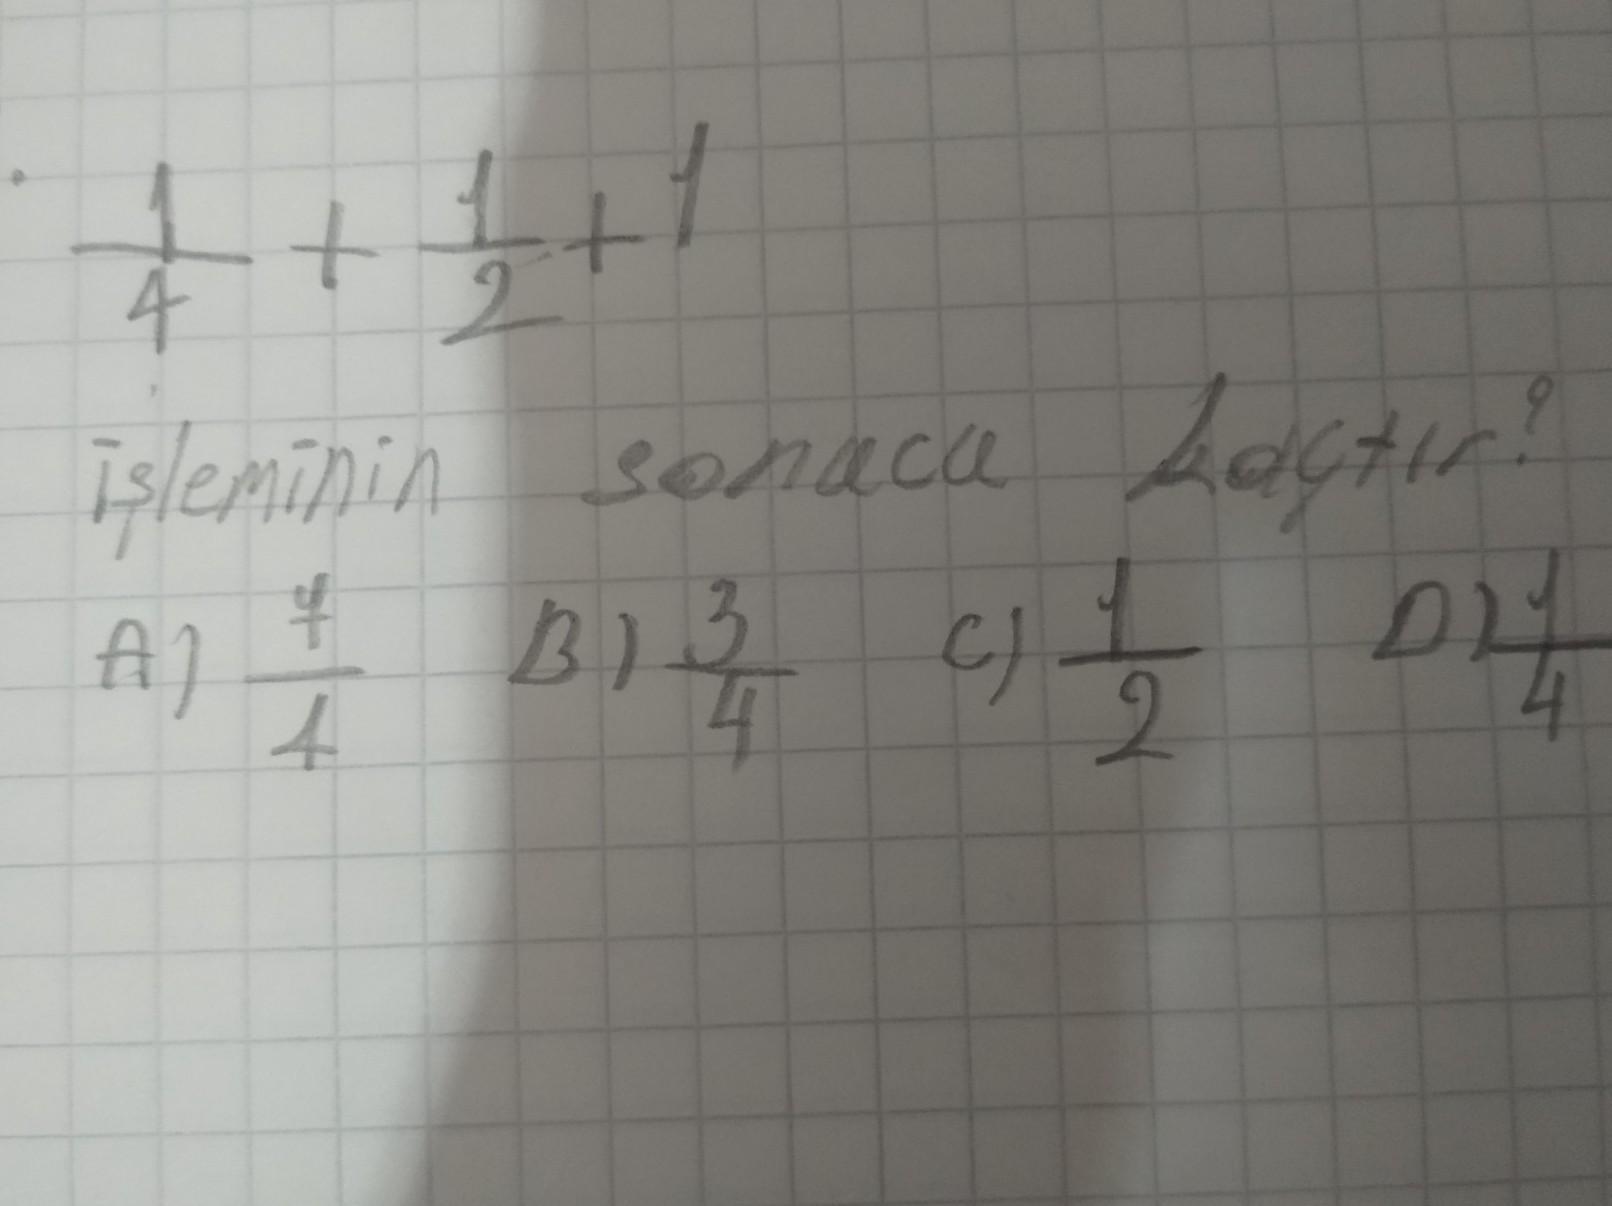 1/4 + 1/2 + 1
işleminin sonucu kaçtır?
A) 7/4 B) 3/4 C) 1/2 D) 1/4